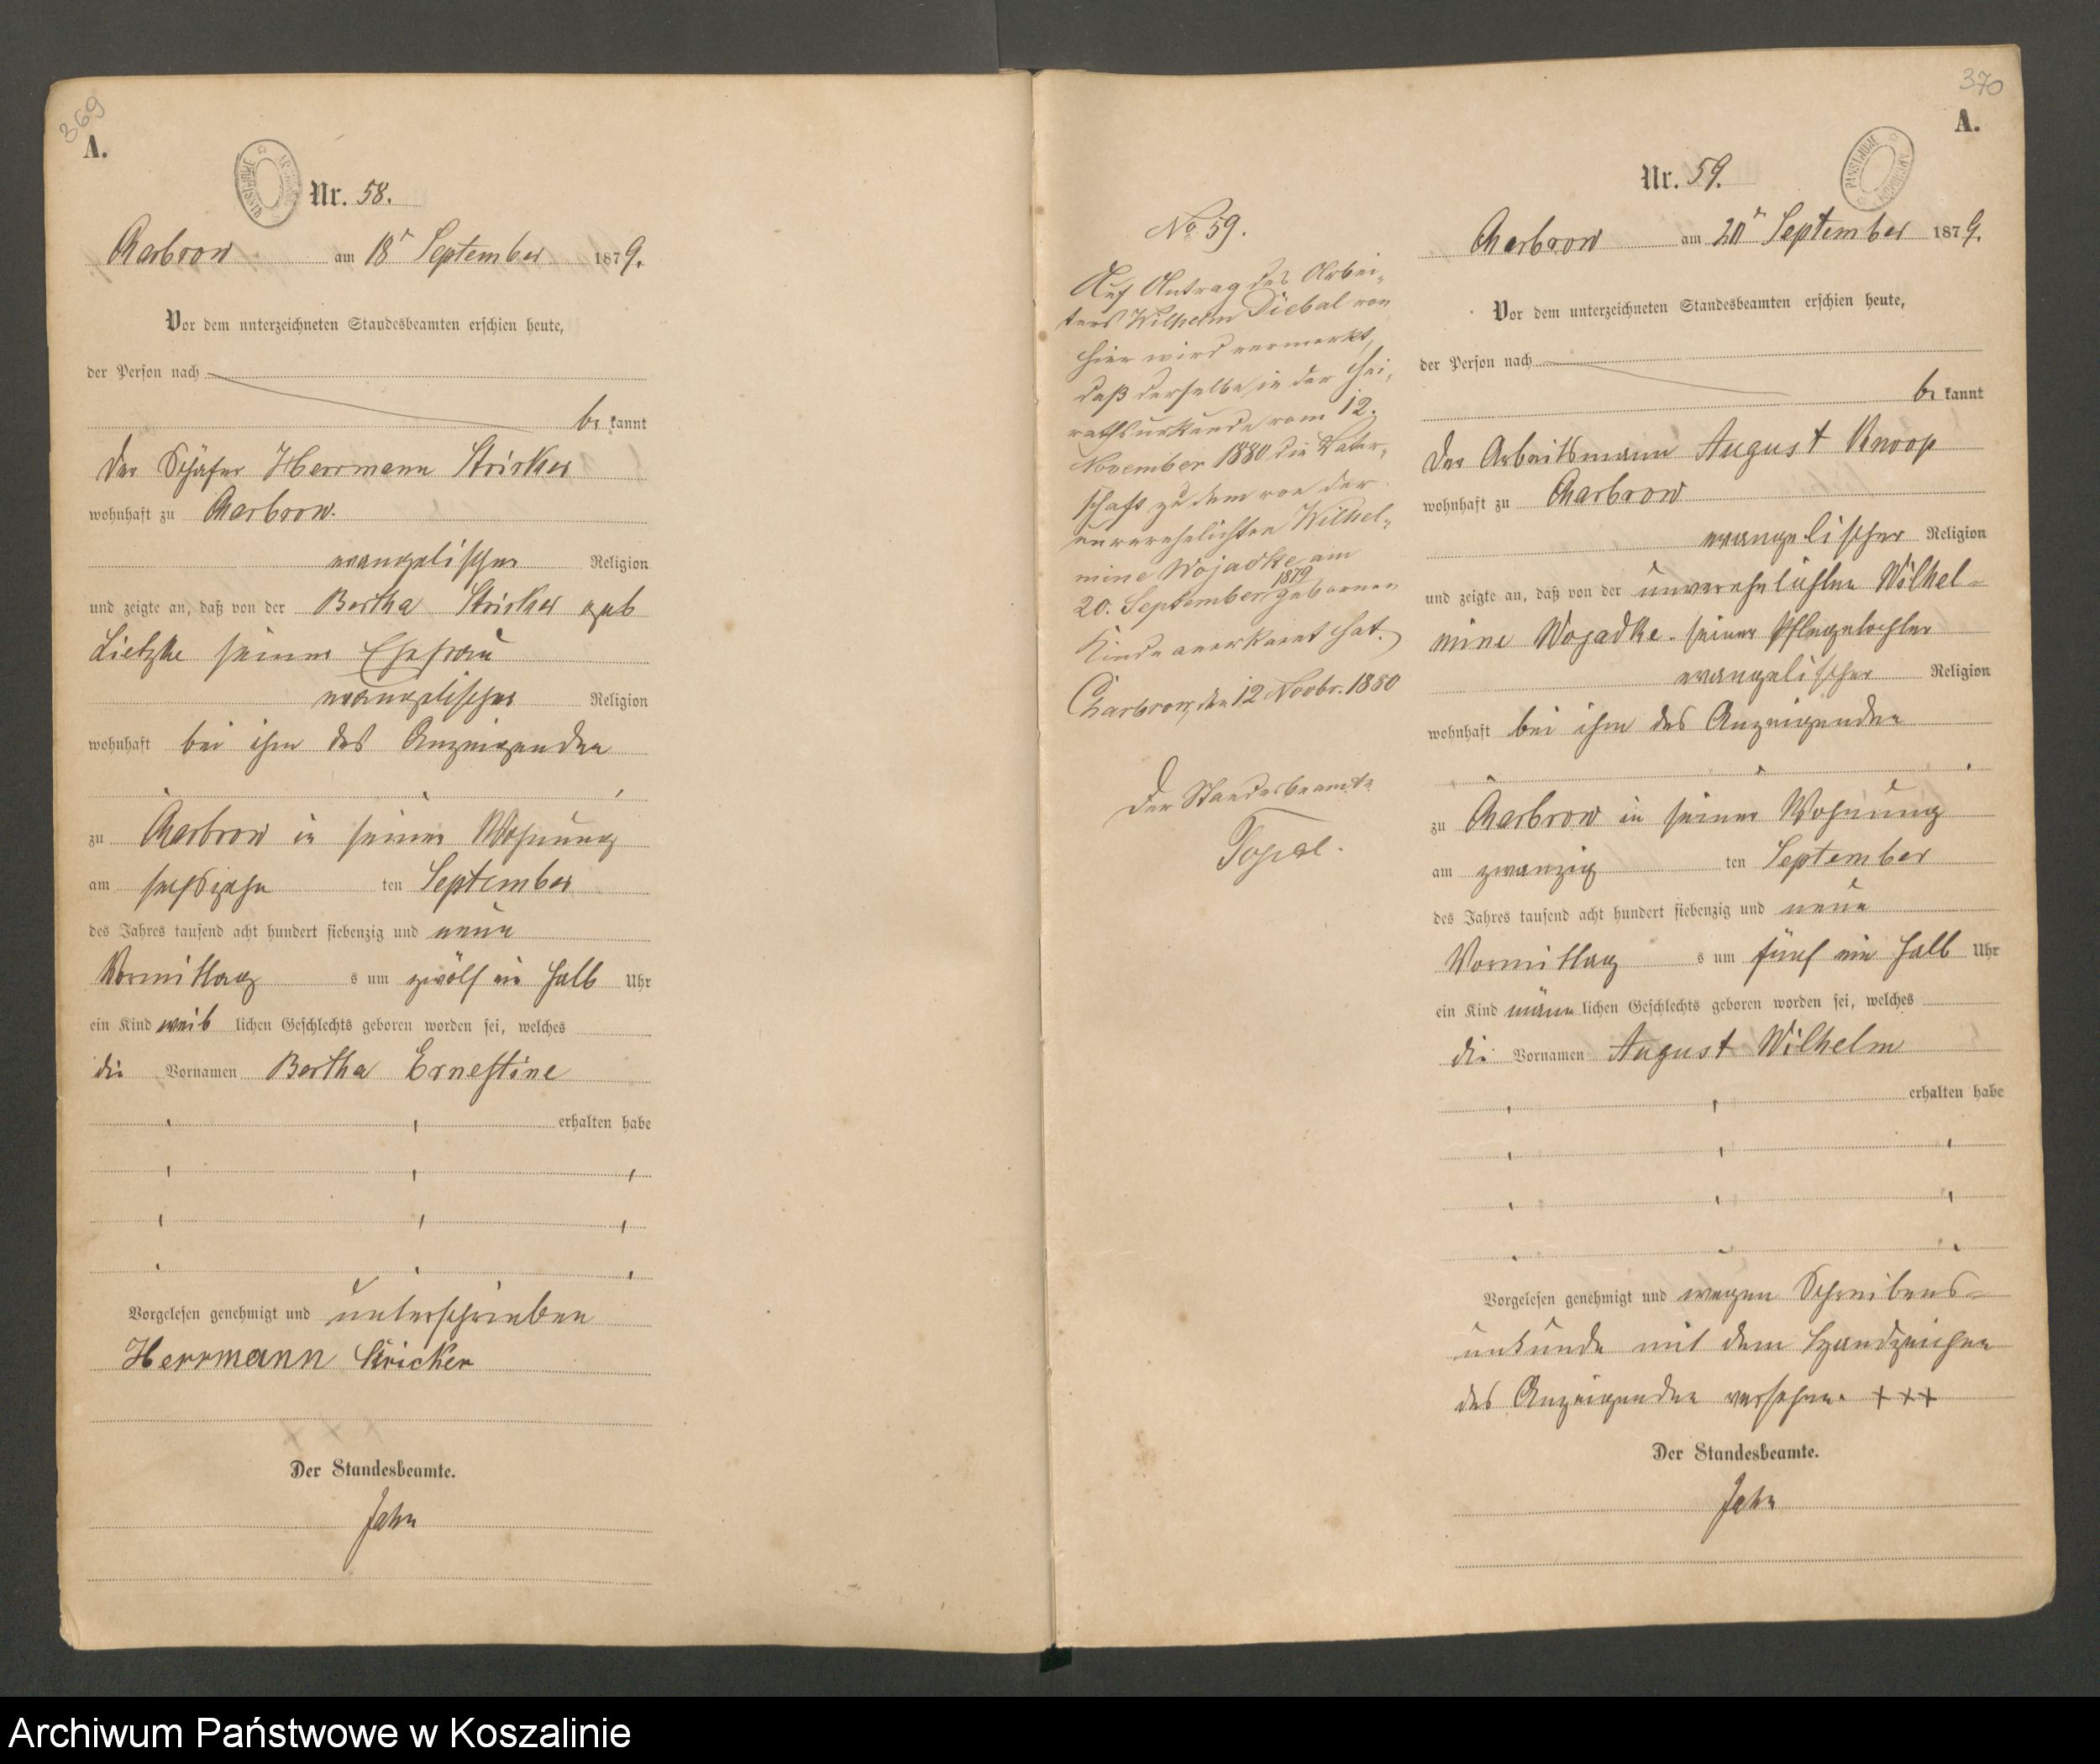 369
A.
Nr. 58.
Charbrow am 18t September 1879.
Vor dem unterzeichneten Standesbeamten erschien heute,
der Person nach
be kannt
der Schäfer Herrmann Stricker
wohnhaft zu Charbrow.
evangelischer Religion
und zeigte an, daß von der Bertha Stricker geb
Lietzke seiner Ehefrau
evangelischer Religion
wohnhaft bei ihm des Anzeigenden
zu Charbrow in seiner Wohnung
am sechszehn ten September
des Jahres tausend acht hundert siebenzig und neun
Vormittag s um zwölf ein halb Uhr
ein Kind weib lichen Geschlechts geboren worden sei, welches
die Vornamen Bertha Ernestine
erhalten habe
Vorgelesen genehmigt und unterschrieben
Herrmann Stricker
Der Standesbeamte.
Jahn
No 59.
Auf Antrag des Arbei-
ters Wilhelm Diebal von
hier wird vermerkt,
daß derselbe in der Hei-
rathsurkunde vom 12.
November 1880 die Vater-
schaft zu dem von der
unverehelichten Wilhel-
mine Wojadke am
20. September 1879 geborenen
Kinde anerkannt hat.
Charbrow, den 12 Novbr. 1880
Der Standesbeamte
370
A.
Nr. 59.
Charbrow am 20t September 1879.
Vor dem unterzeichneten Standesbeamten erschien heute,
der Person nach
be kannt
der Arbeitsmann August Knoop
wohnhaft zu Charbrow
evangelischer Religion
und zeigte an, daß von der unverehelichten Wilhel-
mine Wojadke. seiner Pflegetochter
evangelischer Religion
wohnhaft bei ihm des Anzeigenden
zu Charbrow in seiner Wohnung
am zwanzig ten September
des Jahres tausend acht hundert siebenzig und neun
Vormittag s um fünf ein halb Uhr
ein Kind männ lichen Geschlechts geboren worden sei, welches
die Vornamen August Wilhelm
erhalten habe
Vorgelesen genehmigt und wegen Schreibens-
unkunde mit dem Handzeichen
des Anzeigenden versehen. +++
Der Standesbeamte.
Jahn
Archiwum Państwowe w Koszalinie